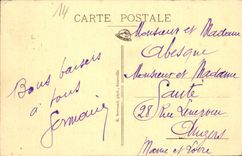 14
CARTE POSTALE
Bons baisers
à tous
Germaine
Monsieur et Madame
Abesque
Monsieur et Madame
28 Rue
Angers
Maine et Loire